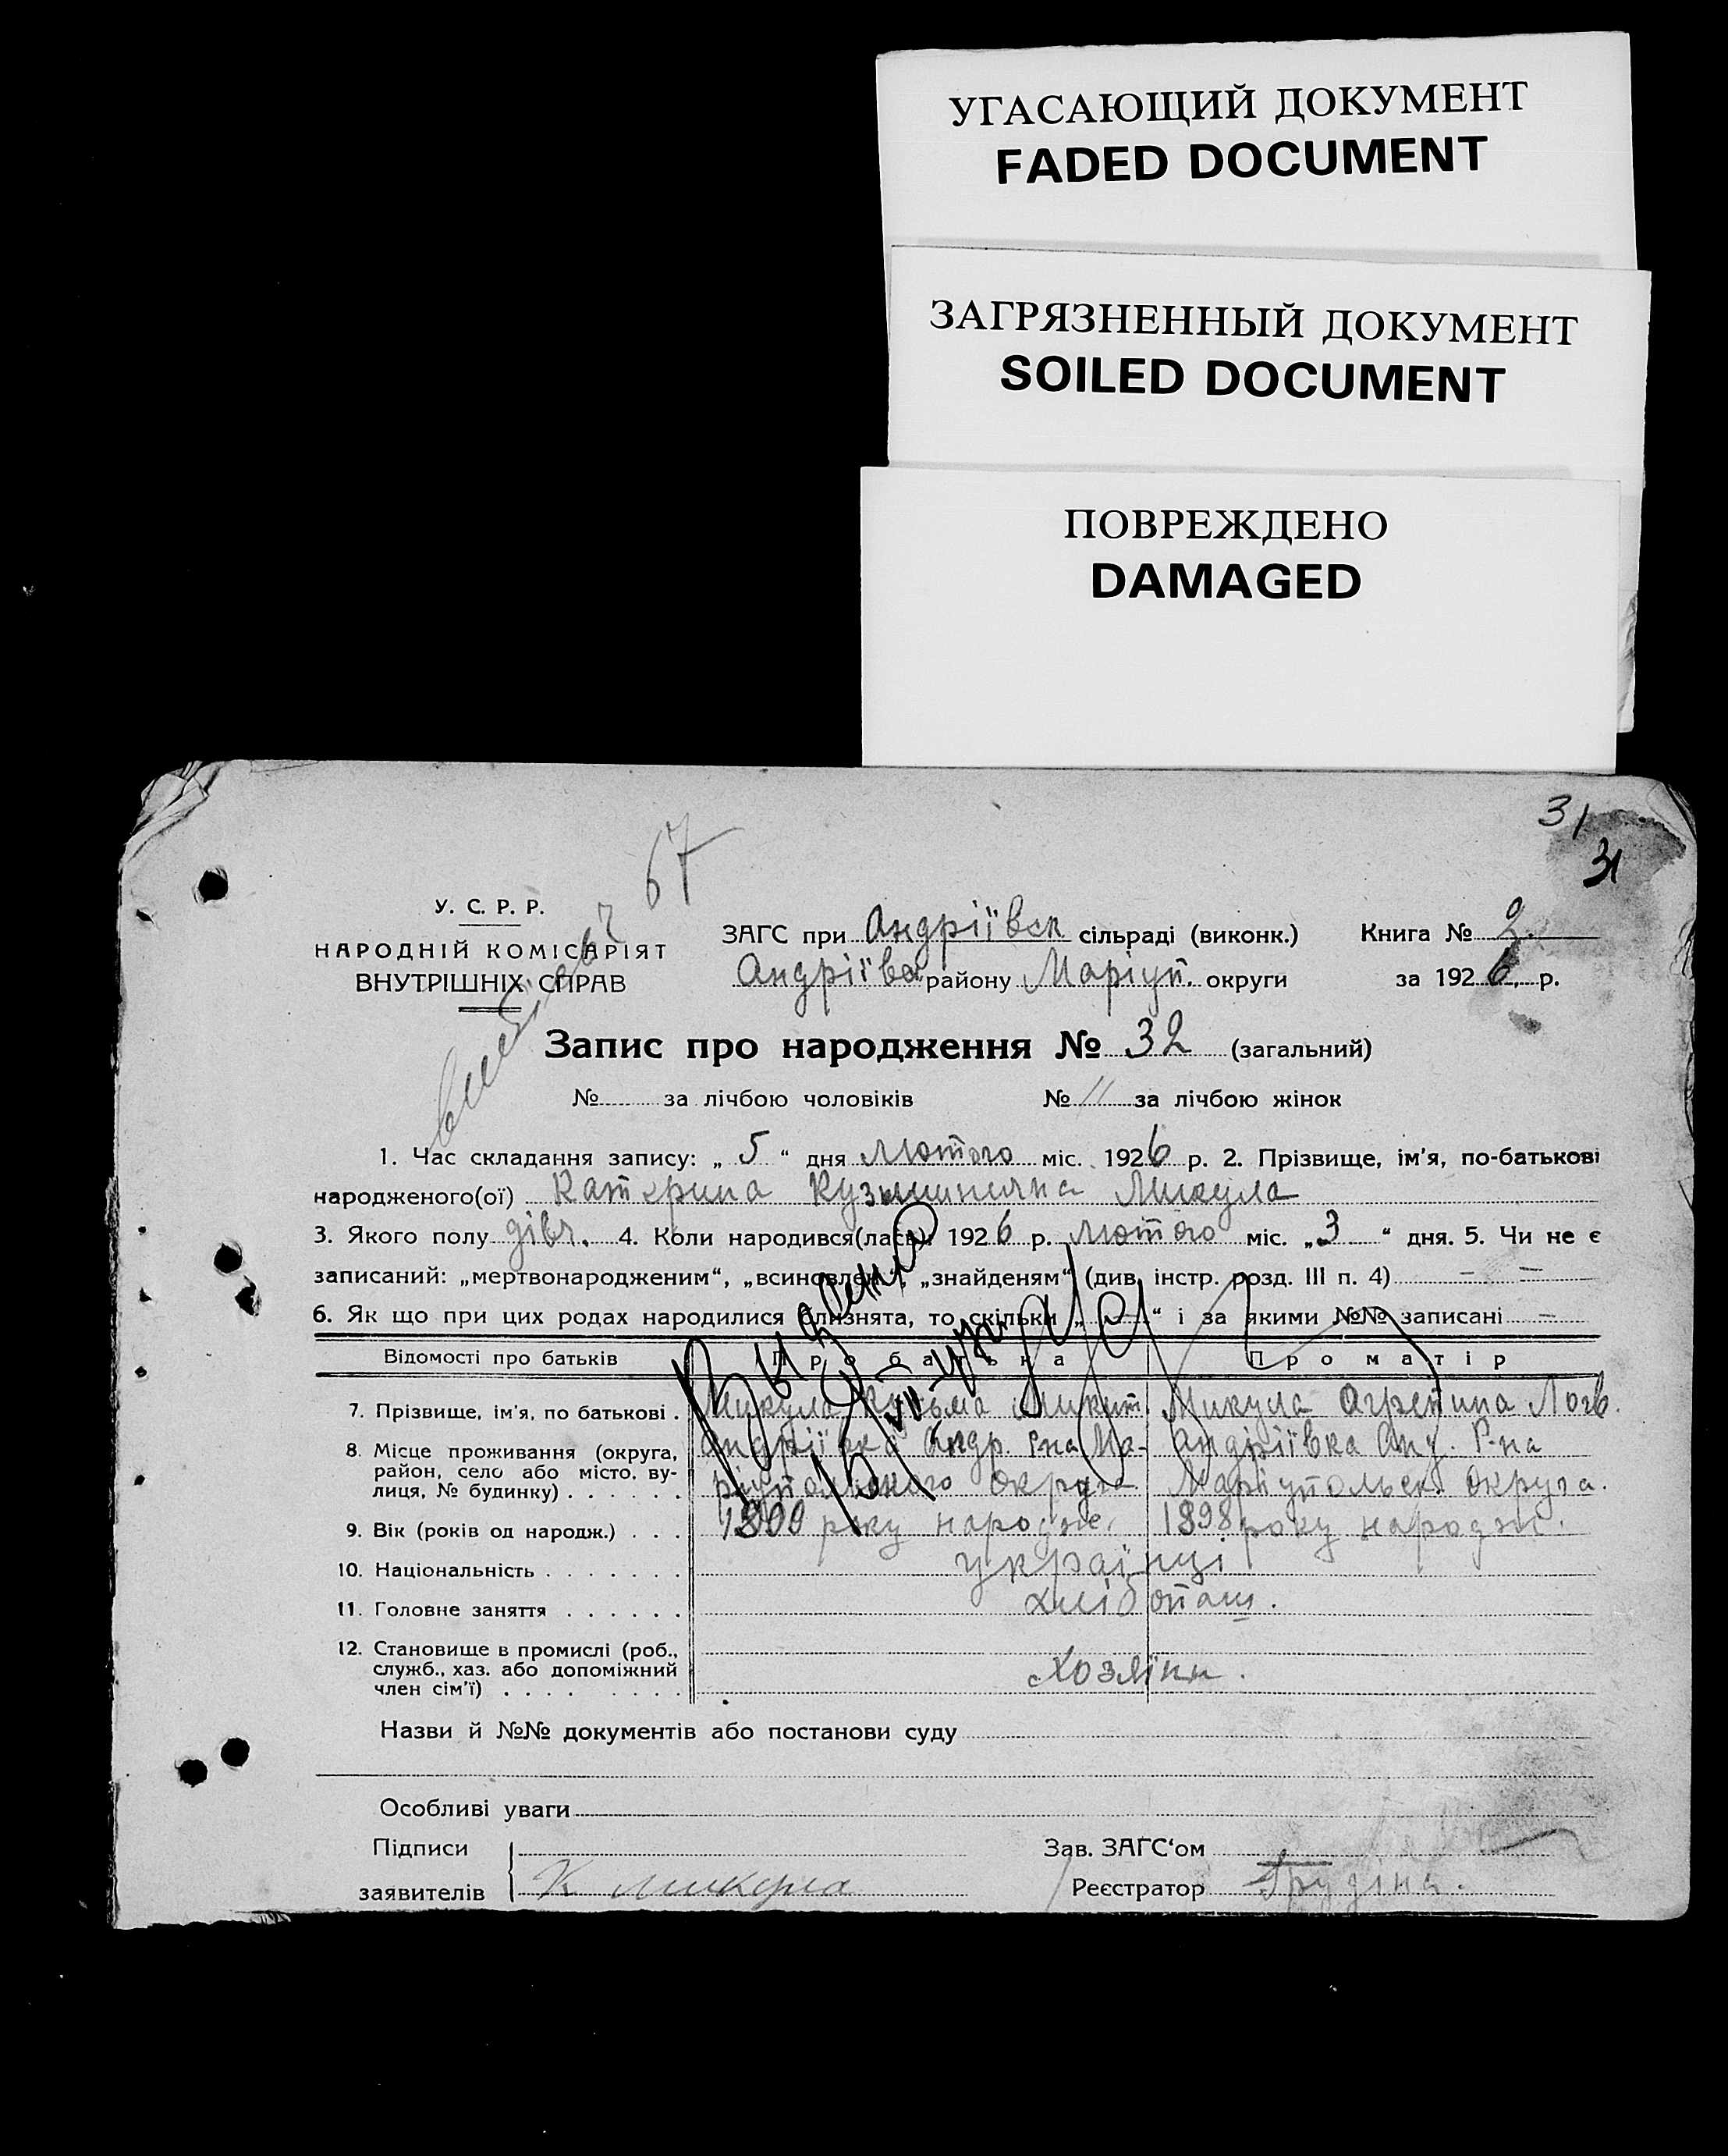 УГАСАЮЩИЙ ДОКУМЕНТ
FADED DOCUMENT
ЗАГРЯЗНЕННЫЙ ДОКУМЕНТ
SOILED DOCUMENT
ПОВРЕЖДЕНО
DAMAGED
31
31
67
У. С. Р. Р.
НАРОДНІЙ КОМІСАРІЯТ
ВНУТРІШНІХ СПРАВ
ЗАГС при Андріївск сільраді (виконк.) Книга № 2.
Андріївск району Маріуп. округи за 1926 р.
Запис про народження № 32 (загальний)
№ за лічбою чоловіків № 11 за лічбою жінок
1. Час складання запису: „ 5 “ дня лютого міс. 1926 р. 2. Прізвище, ім'я, по-батькові
народженого(ої) Катерина Микула
3. Якого полу дівч. 4. Коли народився(лась): 1926 р. лютого міс. „3 “ дня. 5. Чи не є
записаний: „мертвонародженим“, „всиновлен“, „знайденям“ (див. інстр. розд. III п. 4) — —
6. Як що при цих родах народилися близнята, то скільки „ — “ і за якими №№ записані —
Відомості про батьків Про батька Про матір
7. Прізвище, ім'я, по батькові . Микула Кузьма Микит. Микула Агрепина Логв.
8. Місце проживання (округа, Андріївка Андр. Р-на Ма- Андріївка Анд. Р-на
район, село або місто. ву- ріупольского округа Маріупольск. округа.
лиця, № будинку) . . . . . .
9. Вік (років од народж.) . . . 1900 року народж. 1898 року народж.
10. Національність . . . . . . . українці
11. Головне заняття . . . . . . хлібопаш.
12. Становище в промислі (роб.,
служб., хаз. або допоміжний хозяїни.
член сім'ї) . . . . . . . .
Назви й №№ документів або постанови суду
Особливі уваги
Підписи Зав. ЗАГС‘ом
заявителів К Микула Реєстратор Грудіна.